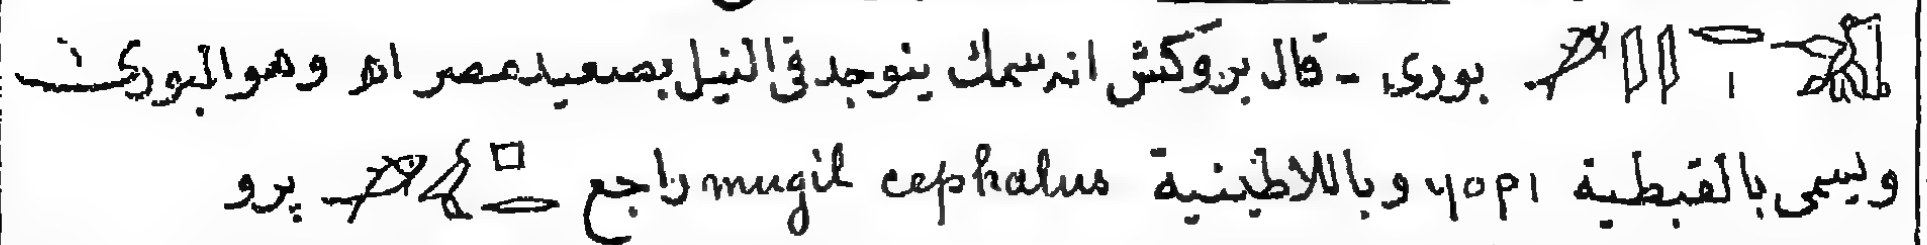 بورى - قال بروكش انه سمك يتوجد فى النيل بصعيد مصر اه وهو البورى
ويسمى بالقبطية ϥⲟⲣⲓ وباللاطينية mugil cephalus راجع پرو